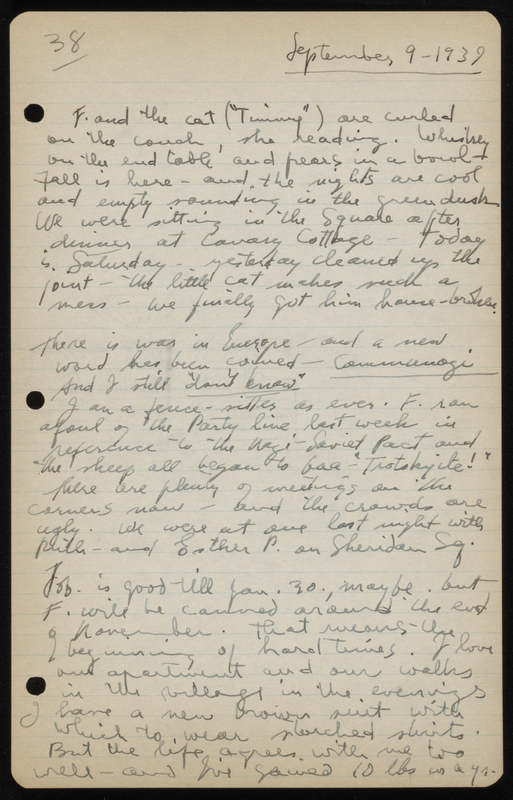 38
September 9 - 1939
F. and the cat ("Timmy") are curled
on the couch, she reading. Whiskey
on the end table and pears in a bowl -
Fall is here - and the nights are cool
and empty sounding in the green dusk
We were sitting in the Square after
dinner at Cavary Cottage - Today
is Saturday - yesterday cleaned up the
joint - the little cat makes such a
mess - we finally got him house-broken.
There is war in Europe - and a new
word has been coined - Communazi
And I still "don't know"
I am a fence-sitter as ever. F. ran
afoul of the Party line last week in
reference to the Nazi-Soviet Pact and
the sheep all began to baa - "Trotskyite!"
There are plenty of meetings on the
corners now - and the crowds are
ugly. We were at one last night with
Ruth - and Esther P. on Sheridan Sq.
Job. is good till Jan. 30., maybe. but
F. will be canned around the end
of November. That means the
beginning of hard times. I love
our apartment and our walks
in the village in the evenings
I have a new brown suit with
which to wear starched shirts.
But the life agrees with me too
well - and I've gained 10 lbs in a yr.